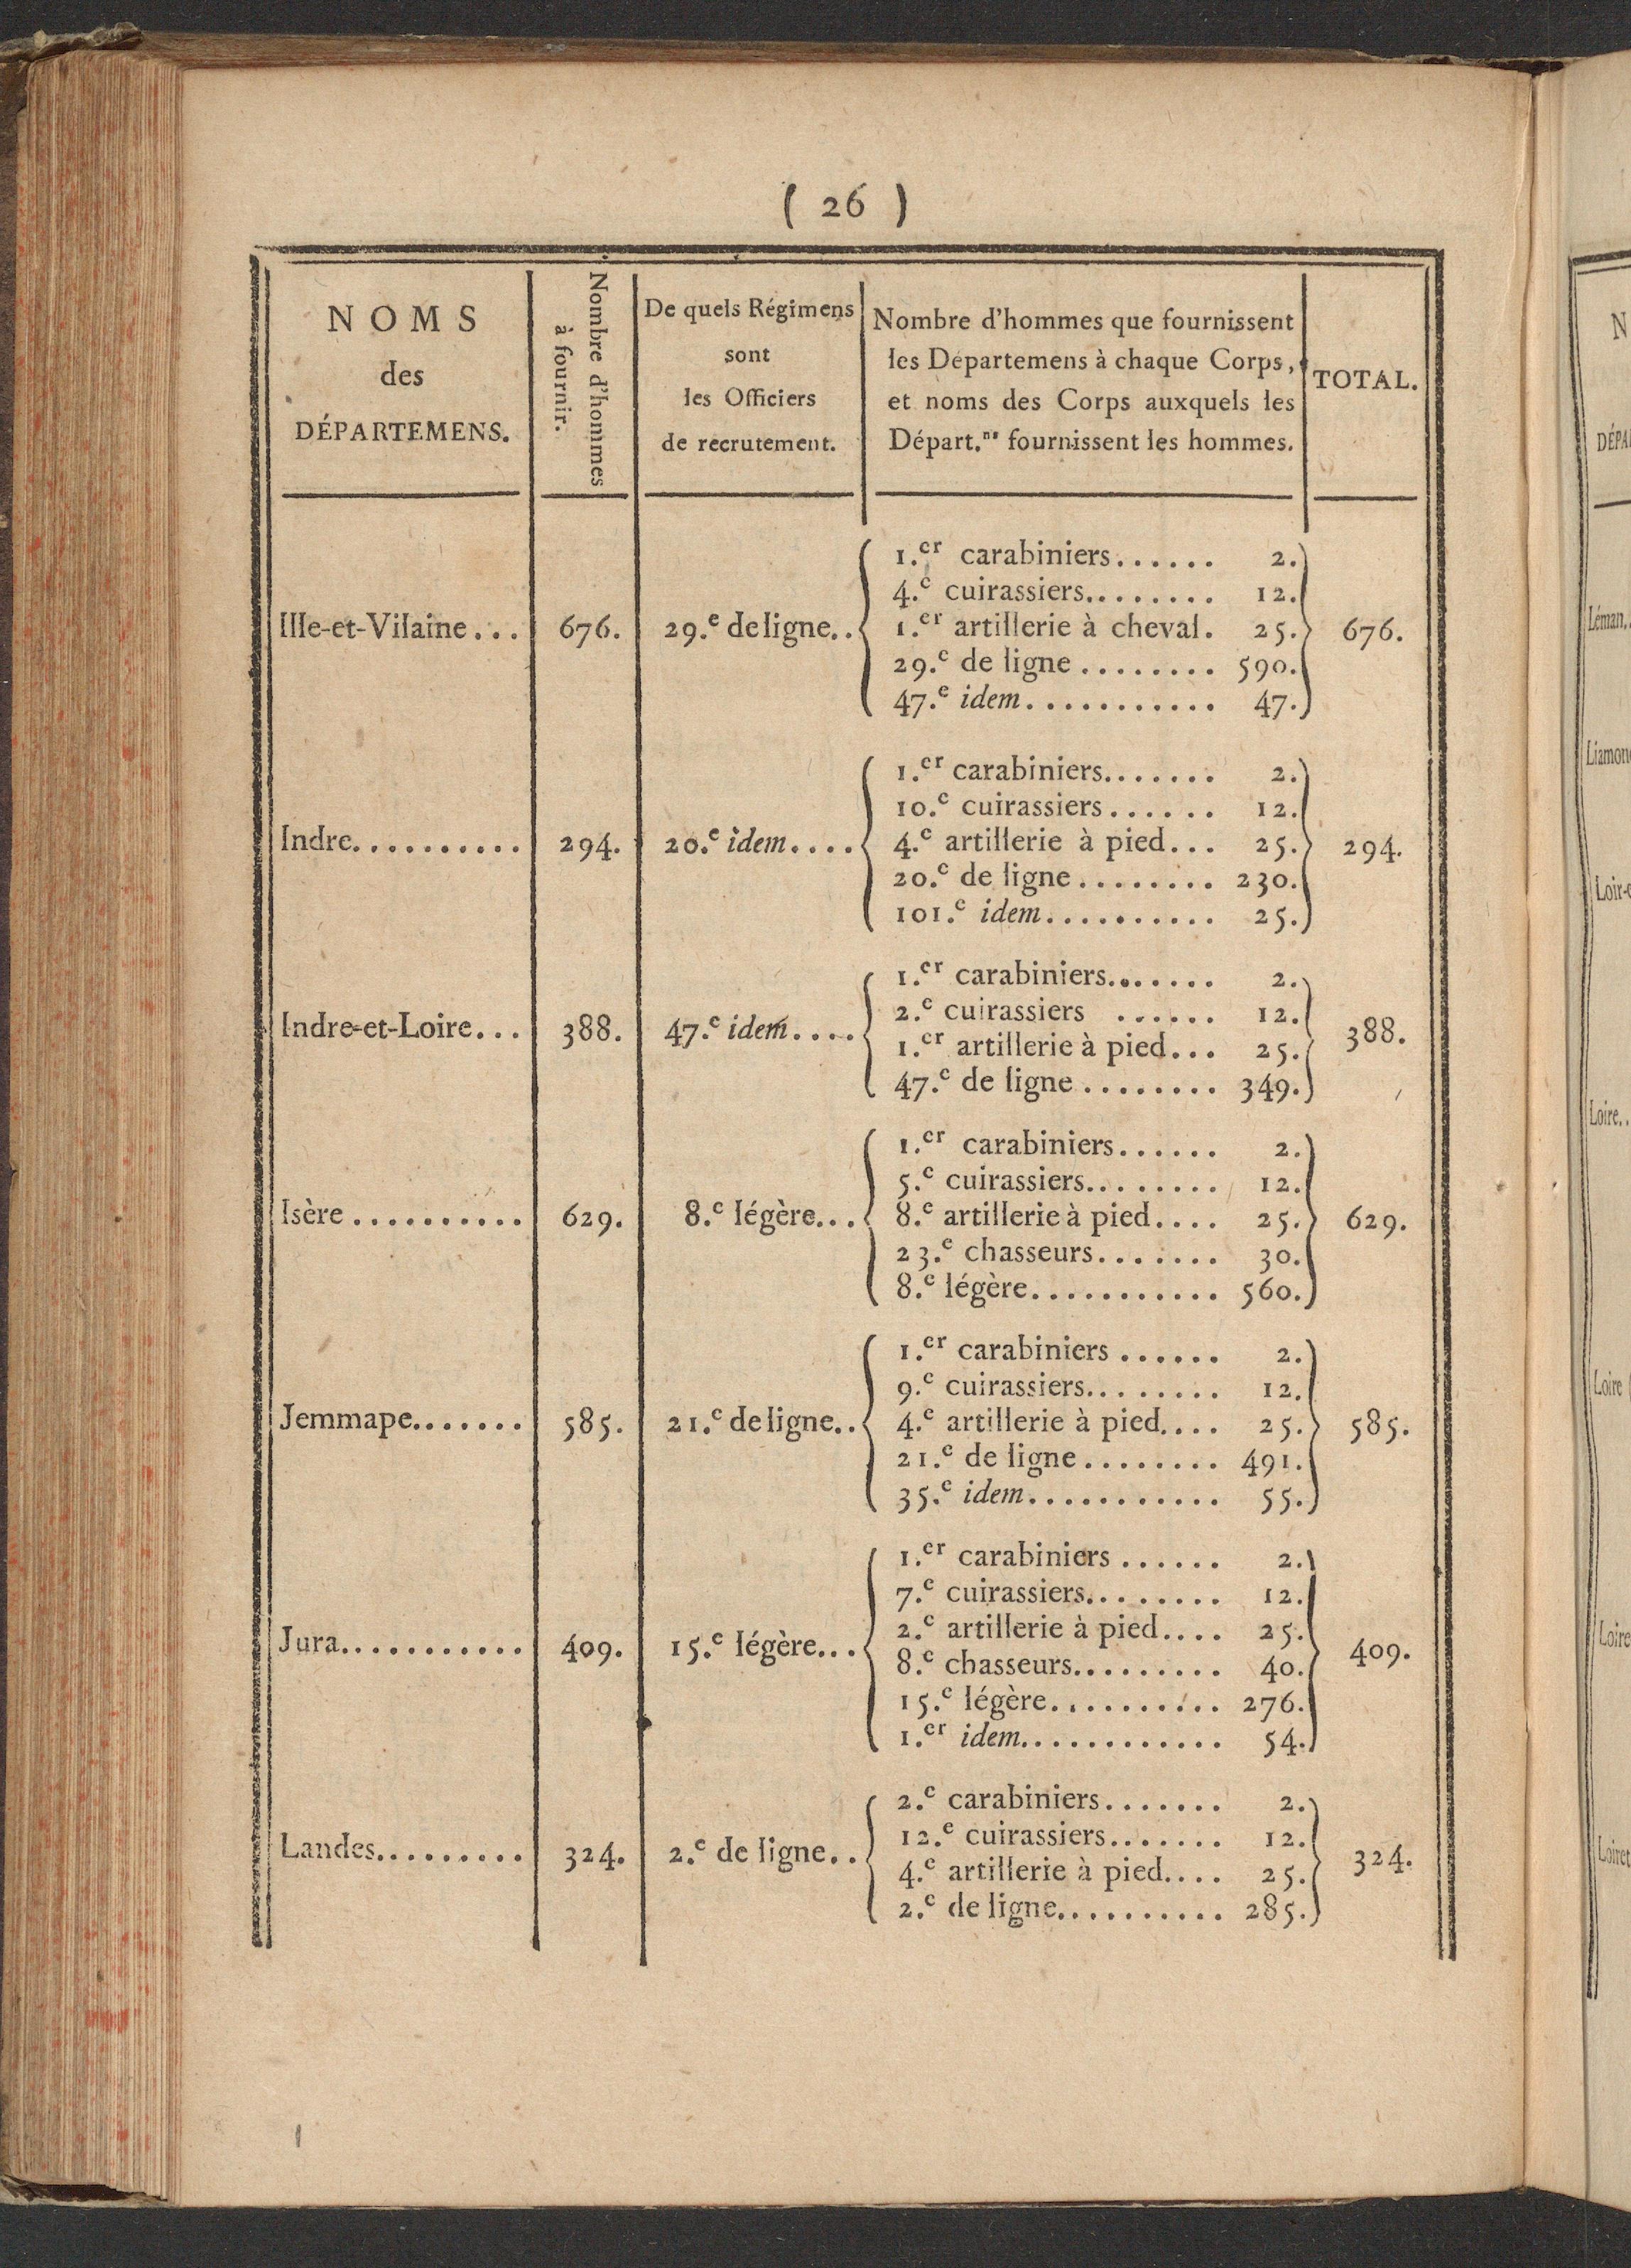 ( 26 )
NOMS
des
DÉPARTEMENS.
Nombre d'hommes
à fournir.
De quels Régimens
sont
les Officiers
de recrutement.
Nombre d'hommes que fournissent
les Départemens à chaque Corps,
et noms des Corps auxquels les
Départ.ns fournissent les hommes.
TOTAL.
1.er carabiniers...... 2.
4.e cuirassiers........ 12.
Ille-et-Vilaine... 676. 29.e de ligne.. 1.er artillerie à cheval. 25. 676.
29.e de ligne ........ 590.
47.e idem........... 47.
1.er carabiniers....... 2.
10.e cuirassiers...... 12.
Indre.......... 294. 20.e idem.... 4.e artillerie à pied... 25. 294.
20.e de ligne ........ 230.
101.e idem.......... 25.
1.er carabiniers....... 2.
2.e cuirassiers ...... 12.
Indre-et-Loire... 388. 47.e idem.... 388.
1.er artillerie à pied... 25.
47.e de ligne ........ 349.
1.er carabiniers...... 2.
5.e cuirassiers........ 12.
Isère .......... 629. 8.e légère... 8.e artillerie à pied.... 25. 629.
23.e chasseurs....... 30.
8.e légère........... 560.
1.er carabiniers ...... 2.
9.e cuirassiers........ 12.
Jemmape....... 585. 21.e de ligne.. 4.e artillerie à pied.... 25. 585.
21.e de ligne ........ 491.
35.e idem........... 55.
1.er carabiniers ...... 2.
7.e cuirassiers........ 12.
2.e artillerie à pied.... 25.
Jura........... 409. 15.e légère... 409.
8.e chasseurs......... 40.
15.e légère.......... 276.
1.er idem............ 54.
2.e carabiniers....... 2.
12.e cuirassiers....... 12.
Landes......... 324. 2.e de ligne.. 324.
4.e artillerie à pied.... 25.
2.e de ligne.......... 285.
N
Léman.
Loire..
Loire